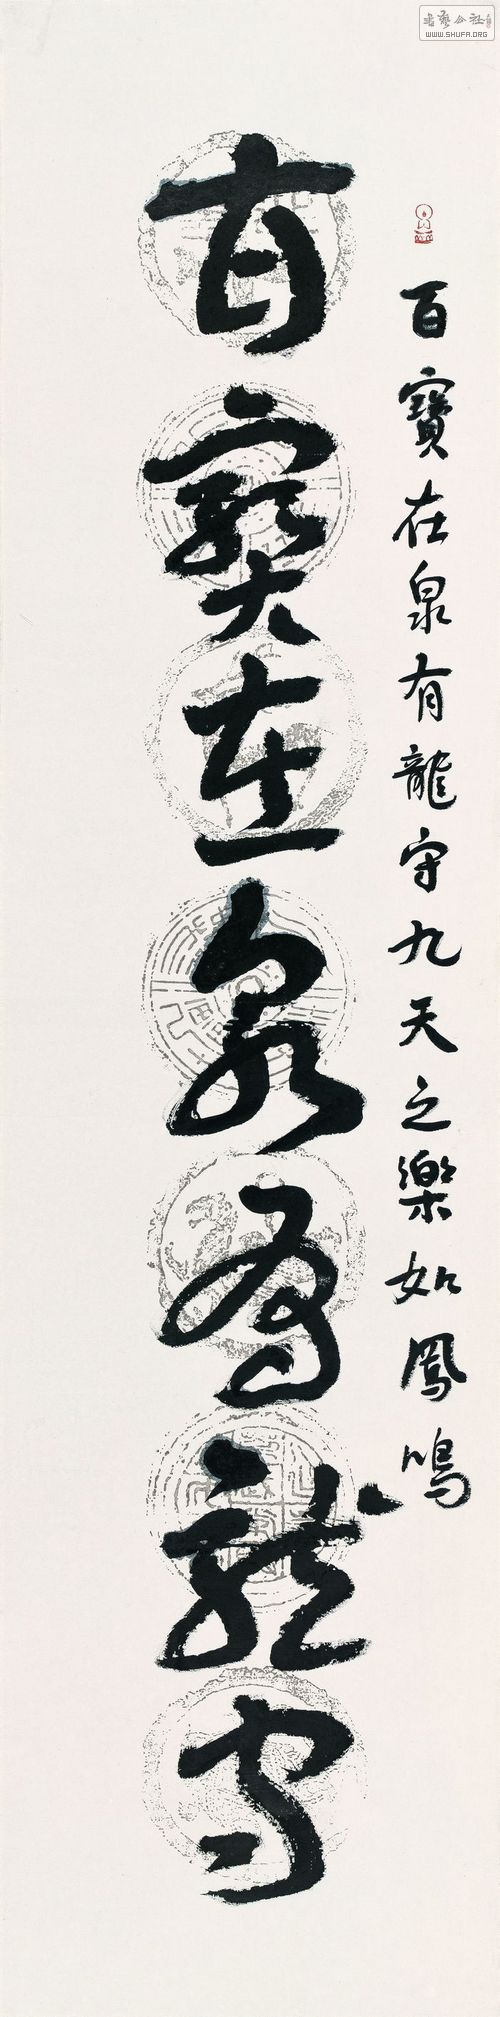 百寶在泉有龍守九天之樂如鳳鳴
百寶在泉有龍守
書藝公社
WWW.SHUFA.ORG